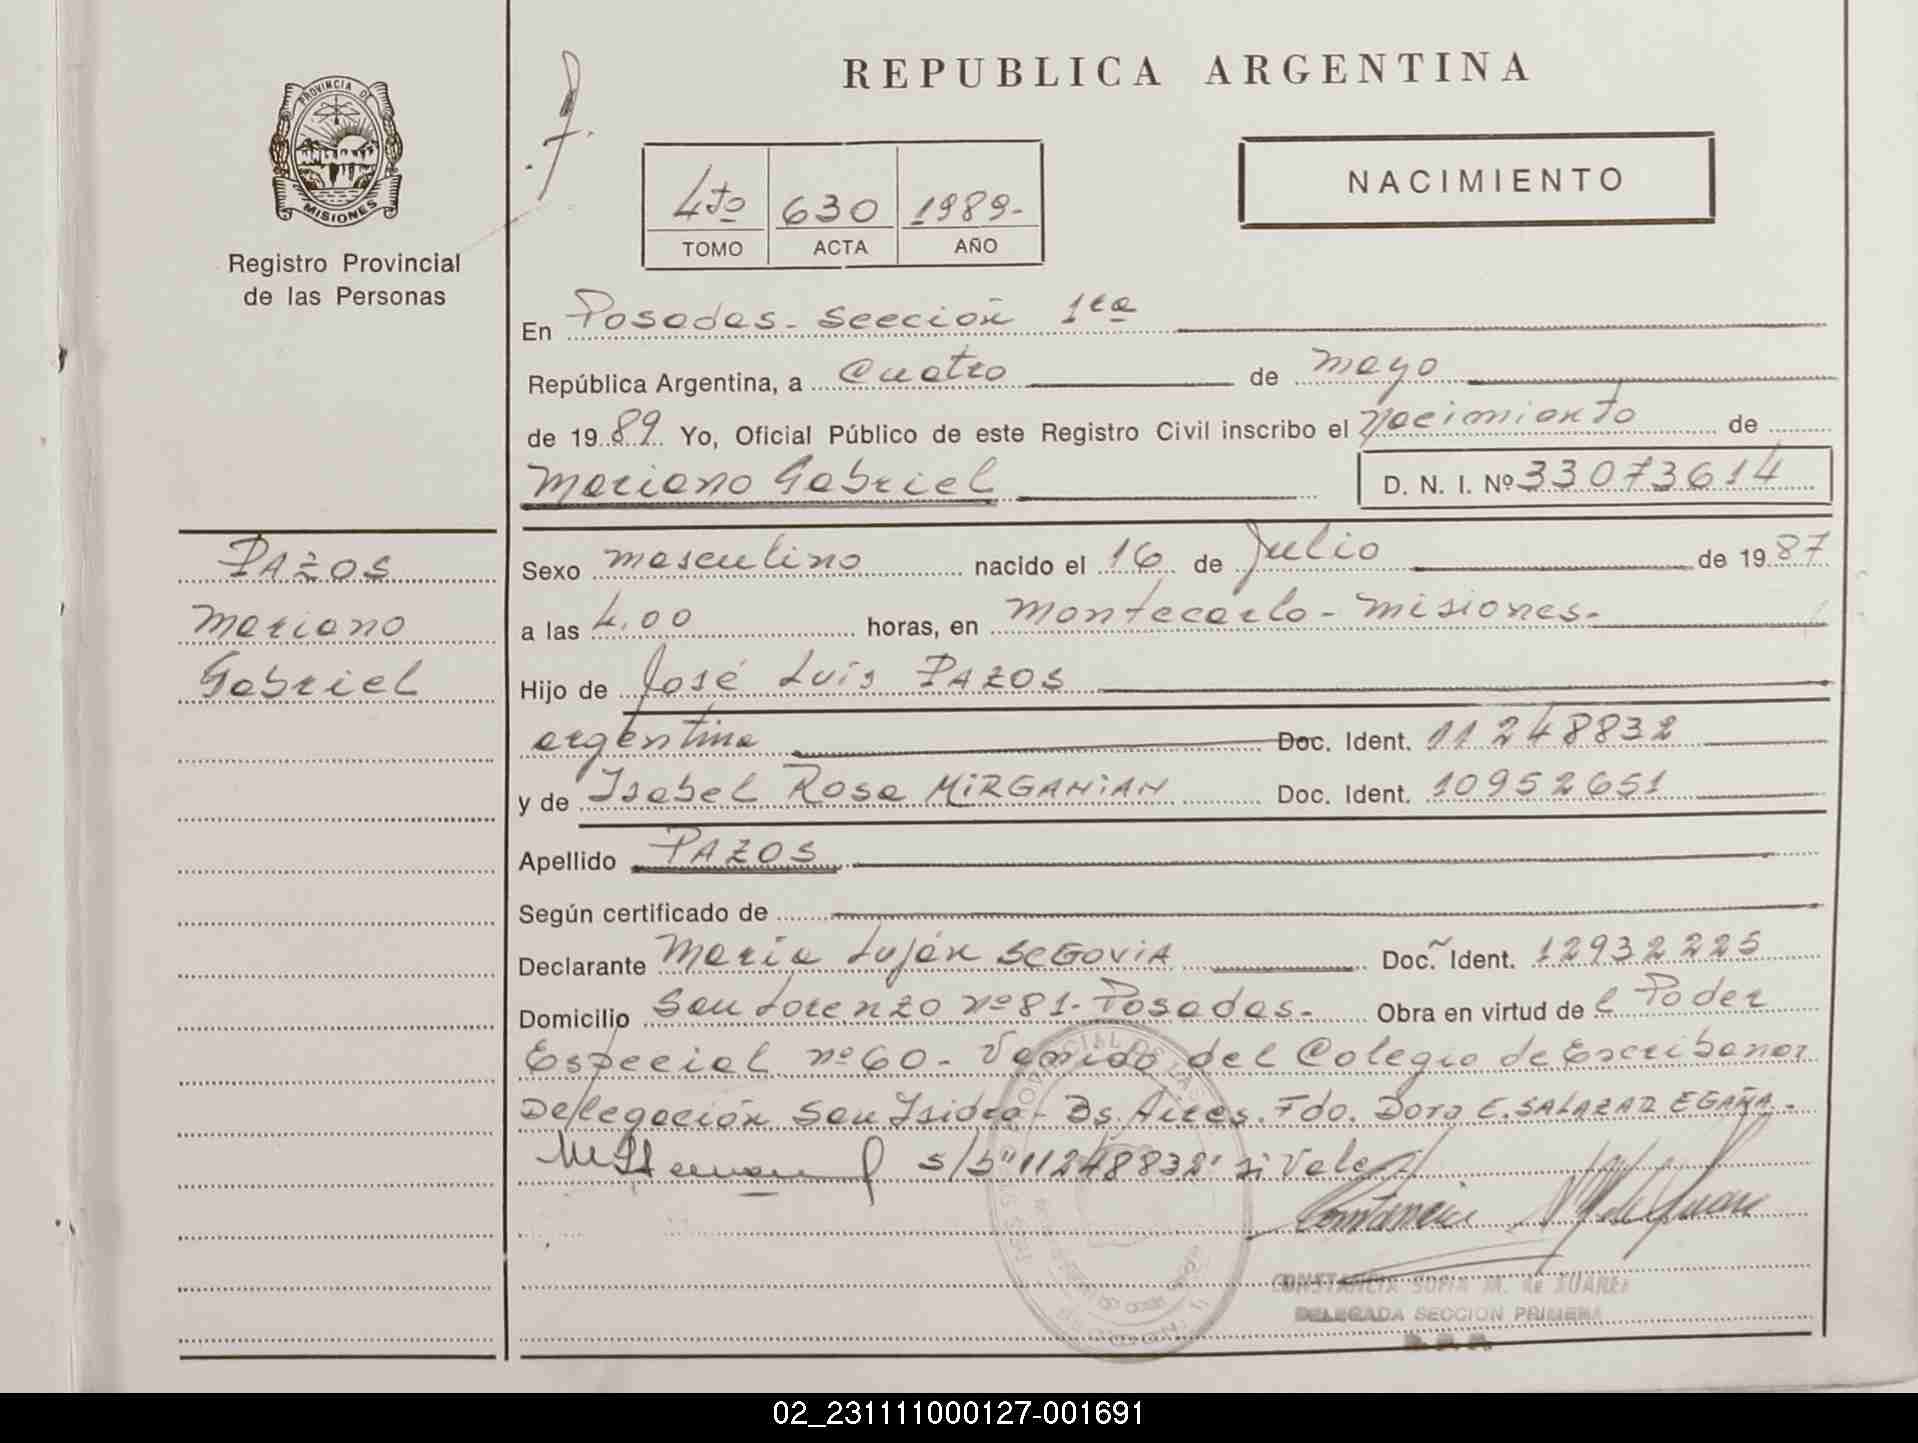 PROVINCIA DE
MISIONES
Registro Provincial
de las Personas
REPUBLICA ARGENTINA
4to 630 1989-
TOMO ACTA AÑO
NACIMIENTO
En Posadas - Sección 1ra
República Argentina, a cuatro de mayo
de 1989 Yo, Oficial Público de este Registro Civil inscribo el Nacimiento de
Mariano Gabriel D. N. I. Nº 33073614
PAZOS
Mariano
Gabriel
Sexo masculino nacido el 16 de Julio de 1987
a las 4.00 horas, en Montecarlo - Misiones.
Hijo de José Luis PAZOS
argentina Doc. Ident. 11248832
y de Isabel Rosa MIRGANIAN Doc. Ident. 10952651
Apellido PAZOS
Según certificado de
Declarante María Luján SEGOVIA Doc. Ident. 12932225
Domicilio San Lorenzo nº 81 - Posadas. Obra en virtud de l Poder
Especial nº 60 - Venido del Colegio de Escribanos
Delegación San Isidro - Bs. Aires. Fdo. Dora E. SALAZAR EGAÑA.
s/b "11248832" si Vale
CONSTANCIA SOFIA M. de SUAREZ
DELEGADA SECCION PRIMERA
02_231111000127-001691